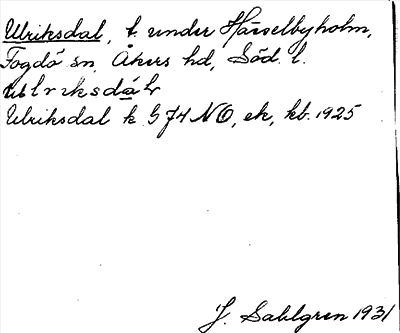 Ulriksdal, t. under Härselbyholm,
Fogdö sn, Åkers hd, Söd. l.
ulriksdáɫ
Ulriksdal k G 74 NO, ek, kb. 1925
J. Sahlgren 1931